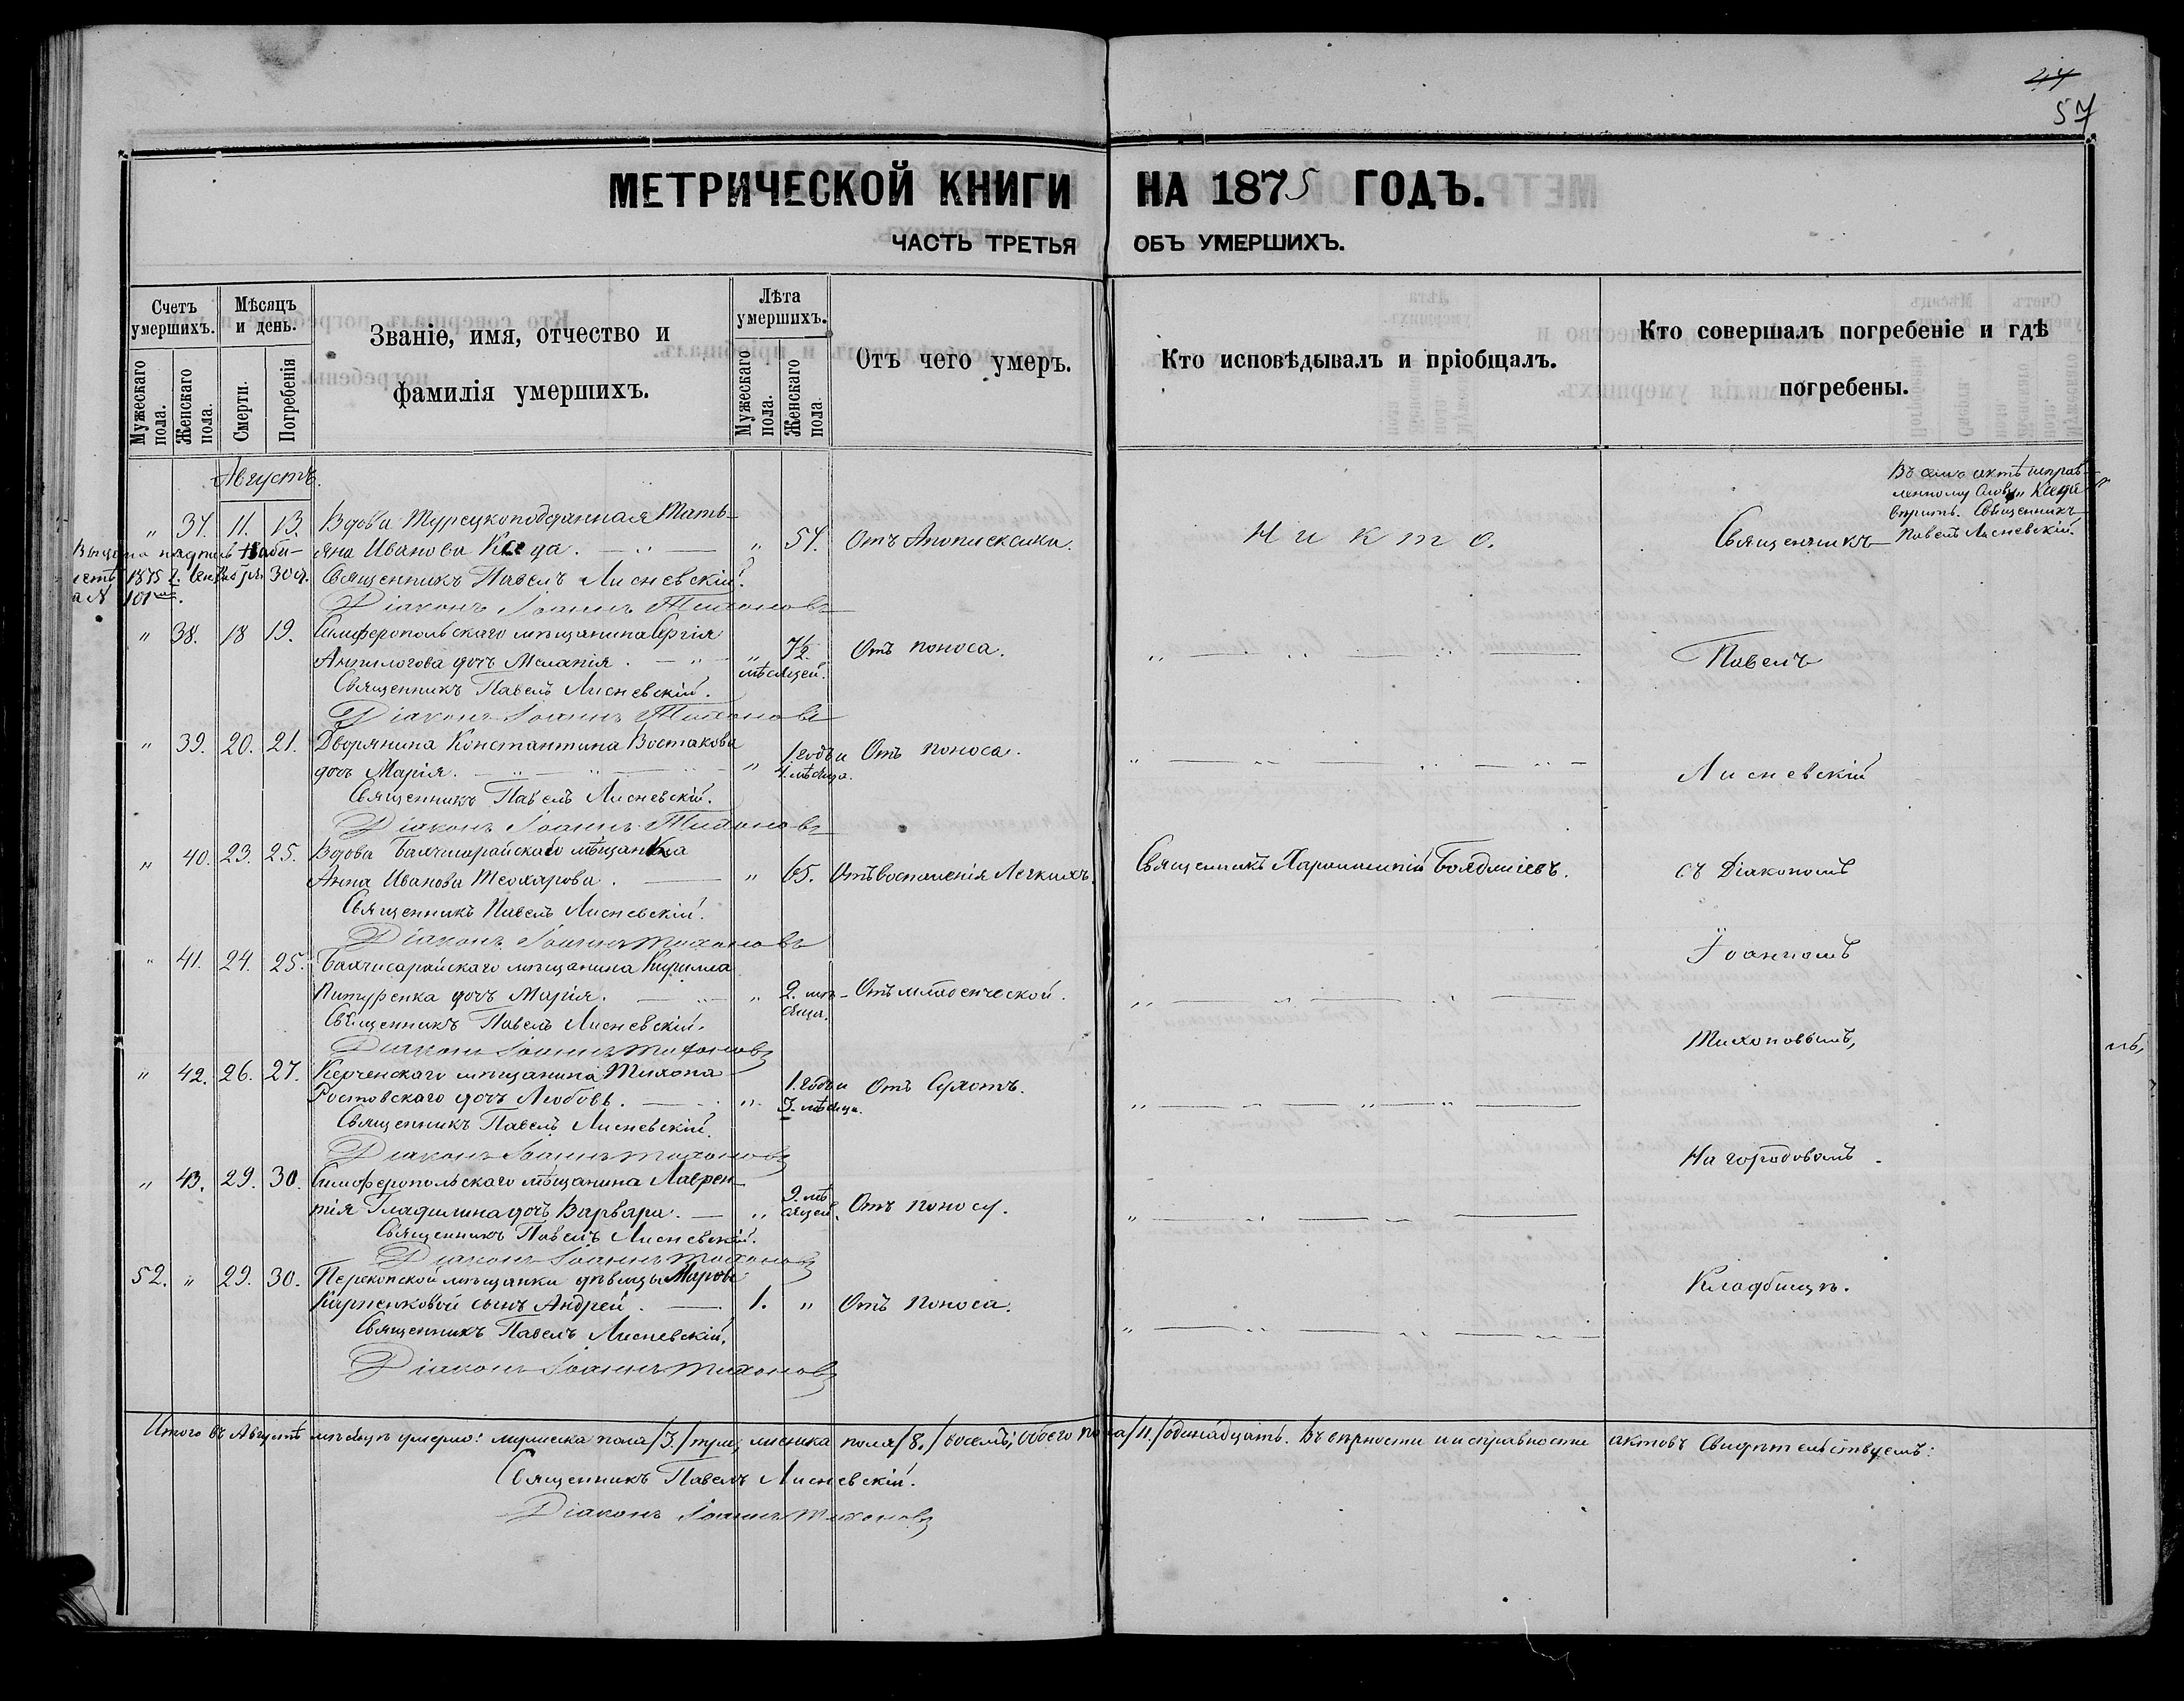 44
57
МЕТРИЧЕСКОЙ КНИГИ НА 1875 ГОДЪ.
ЧАСТЬ ТРЕТЬЯ ОБЪ УМЕРШИХЪ.
Счетъ умершихъ.
Мужескаго пола.
Женскаго пола.
Мѣсяцъ и день.
Смерти.
Погребенія
Званіе, имя, отчество и
фамилія умершихъ.
Лѣта умершихъ.
Мужескаго пола.
Женскаго пола.
Отъ чего умеръ.
Кто исповѣдывалъ и пріобщалъ.
Кто совершалъ погребеніе и гдѣ
погребены.
Августъ.
" 37. 11. 13. Вдова Турецкоподданная Тать-
яна Иванова " 54. Никто. Священникъ
1875 г. 30 д.
101
Священникъ Павелъ Лисневскій.
Діаконъ Іоаннъ Тихоновъ
Священникъ
Павелъ Лисневскій.
" 38. 18 19. Симферопольскаго мѣщанина Сергія
Анпилогова дочь Меланія. " 7½ мѣсяцей. Отъ поноса. Павелъ
Священникъ Павелъ Лисневскій.
Діаконъ Іоаннъ Тихоновъ
" 39. 20. 21. Дворянина Константина Востакова
дочь Марія. " 1. годъ и 4. мѣсяца. Отъ поноса. Лисневскій
Священникъ Павелъ Лисневскій.
Діаконъ Іоаннъ Тихоновъ
" 40. 23. 25. Вдова Бахчисарайскаго мѣщанина
Анна Иванова Теохарова. " 65. Отъ воспаленія Легкихъ. Священникъ съ Діакономъ
Священникъ Павелъ Лисневскій.
Діаконъ Іоаннъ Тихоновъ
" 41. 24. 25. Бахчисарайскаго мѣщанина Кирилла
дочь Марія. " 2. мѣсяца. Отъ младенческой. Іоанномъ
Священникъ Павелъ Лисневскій.
Діаконъ Іоаннъ Тихоновъ
Тихоновымъ,
" 42. 26. 27. Керченскаго мѣщанина Тихона
Ростовскаго дочь Любовь. " 1. годъ и 3. мѣсяца. Отъ Сухотъ.
Священникъ Павелъ Лисневскій.
Діаконъ Іоаннъ Тихоновъ
На городовомъ
" 43. 29. 30. Симферопольскаго мѣщанина Лаврен-
тія дочь Варвара. " 9. мѣсяцей. Отъ поносу.
Священникъ Павелъ Лисневскій.
Діаконъ Іоаннъ Тихоновъ
52. " 29. 30. Перекопской мѣщанки дѣвицы Марѳы
сынъ Андрей. 1. " Отъ Поноса. Кладбищѣ.
Священникъ Павелъ Лисневскій.
Діаконъ Іоаннъ Тихоновъ
Итого въ Августѣ мѣсяцѣ умерло: мужеска пола /3./ три, женска пола /8./ восемь; обоего пола /11/ одинадцать. Въ вѣрности и исправности актовъ свидѣтельствуемъ:
Священникъ Павелъ Лисневскій.
Діаконъ Іоаннъ Тихоновъ